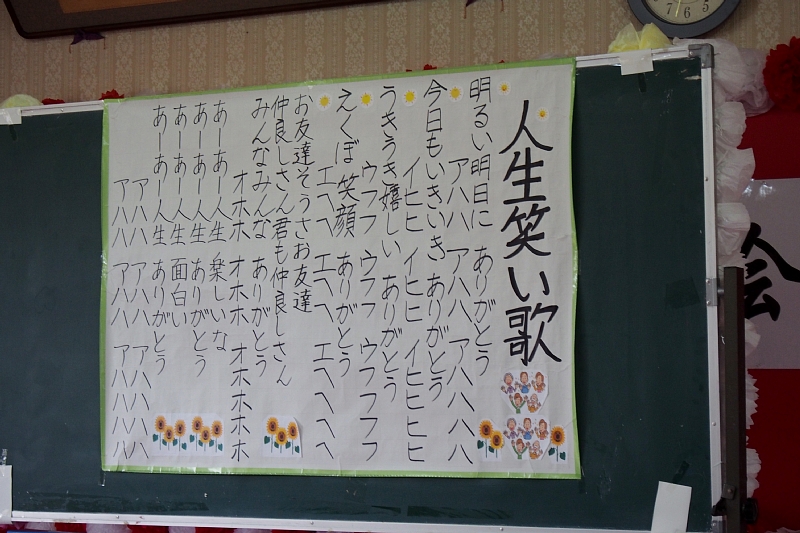 人生笑い歌
明るい明日に ありがとう
アハハ アハハ アハハハハ
今日もいきいき ありがとう
イヒヒ イヒヒ イヒヒヒヒ
うきうき嬉しい ありがとう
ウフフ ウフフ ウフフフフ
えくぼ笑顔 ありがとう
エヘヘ エヘヘ エヘヘヘヘ
お友達そうさお友達
仲良しさん君も仲良しさん
みんなみんな ありがとう
オホホ オホホ オホホホホ
あーあー人生 楽しいな
あーあー人生 ありがとう
あーあー人生 面白い
あーあー人生 ありがとう
アハハ アハハ アハハハハ
アハハ アハハ アハハハハ
会
7
6
5